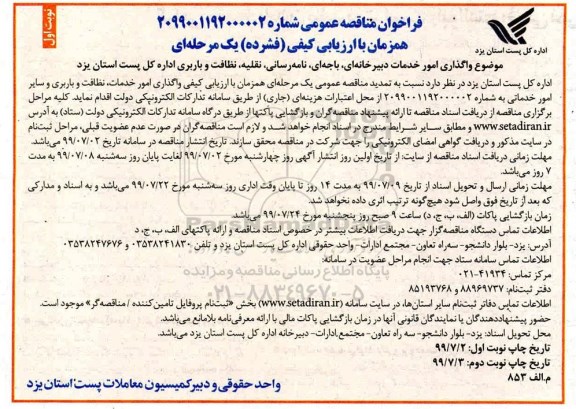 نوبت اول
فراخوان مناقصه عمومی شماره ۲۰۹۹۰۰۱۱۹۲۰۰۰۰۰۲
همزمان با ارزیابی کیفی (فشرده) یک مرحله‌ای
اداره کل پست استان یزد
موضوع واگذاری امور خدمات دبیرخانه‌ای، باجه‌ای، نامه‌رسانی، نقلیه، نظافت و باربری اداره کل پست استان یزد
اداره کل پست استان یزد در نظر دارد نسبت به تمدید مناقصه عمومی یک مرحله‌ای همزمان با ارزیابی کیفی واگذاری امور خدمات، نظافت و باربری و سایر
امور خدماتی به شماره ۲۰۹۹۰۰۱۱۹۲۰۰۰۰۰۲ از محل اعتبارات هزینه‌ای (جاری) از طریق سامانه تدارکات الکترونیکی دولت اقدام نماید. کلیه مراحل
برگزاری مناقصه از دریافت اسناد مناقصه تا ارائه پیشنهاد مناقصه‌گران و بازگشایی پاکتها از طریق درگاه سامانه تدارکات الکترونیکی دولت (ستاد) به آدرس
www.setadiran.ir و مطابق سایر شرایط مندرج در اسناد انجام خواهد شد و لازم است مناقصه‌گران در صورت عدم عضویت قبلی، مراحل ثبت‌نام
در سایت مذکور و دریافت گواهی امضای الکترونیکی را جهت شرکت در مناقصه محقق سازند. تاریخ انتشار مناقصه در سامانه تاریخ ۹۹/۰۷/۰۲ می‌باشد.
مهلت زمانی دریافت اسناد مناقصه از سایت: از تاریخ اولین روز انتشار آگهی روز چهارشنبه مورخ ۹۹/۰۷/۰۲ لغایت پایان روز سه‌شنبه ۹۹/۰۷/۰۸ به مدت
۷ روز می‌باشد.
مهلت زمانی ارسال و تحویل اسناد از تاریخ ۹۹/۰۷/۰۹ به مدت ۱۴ روز تا پایان وقت اداری روز سه‌شنبه مورخ ۹۹/۰۷/۲۲ می‌باشد و به اسناد و مدارکی
که بعد از تاریخ فوق واصل شود هیچ‌گونه ترتیب اثری داده نخواهد شد.
زمان بازگشایی پاکات (الف، ب، ج، د) ساعت ۹ صبح روز پنجشنبه مورخ ۹۹/۰۷/۲۴ می‌باشد.
اطلاعات تماس دستگاه مناقصه‌گزار جهت دریافت اطلاعات بیشتر در خصوص اسناد مناقصه و ارائه پاکتهای الف، ب، ج، د:
آدرس: یزد- بلوار دانشجو- سه‌راه تعاون- مجتمع ادارات- واحد حقوقی اداره کل پست استان یزد و تلفن ۰۳۵۳۸۲۴۱۸۳۰ و ۰۳۵۳۸۲۴۷۶۷۶
اطلاعات تماس سامانه ستاد جهت انجام مراحل عضویت در سامانه:
مرکز تماس: ۴۱۹۳۴-۰۲۱
دفتر ثبت‌نام: ۸۸۹۶۹۷۳۷ و ۸۵۱۹۳۷۶۸
اطلاعات تماس دفاتر ثبت‌نام سایر استان‌ها، در سایت سامانه (www.setadiran.ir) بخش «ثبت‌نام پروفایل تامین‌کننده / مناقصه‌گر» موجود است.
حضور پیشنهاددهندگان یا نمایندگان قانونی آنها در زمان بازگشایی پاکات مالی با ارائه معرفی‌نامه بلامانع می‌باشد.
محل تحویل اسناد: یزد- بلوار دانشجو- سه راه تعاون- مجتمع ادارات- دبیرخانه اداره کل پست استان یزد می‌باشد.
تاریخ چاپ نوبت اول: ۹۹/۷/۲
تاریخ چاپ نوبت دوم: ۹۹/۷/۳
م.الف ۸۵۳
واحد حقوقی و دبیر کمیسیون معاملات پست استان یزد
پایگاه اطلاع رسانی مناقصه و مزایده
۰۲۱-۸۸۳۴۹۶۷۰-۵